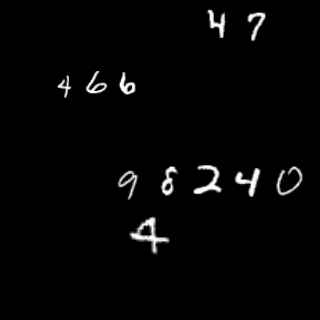 47
466
98240
4